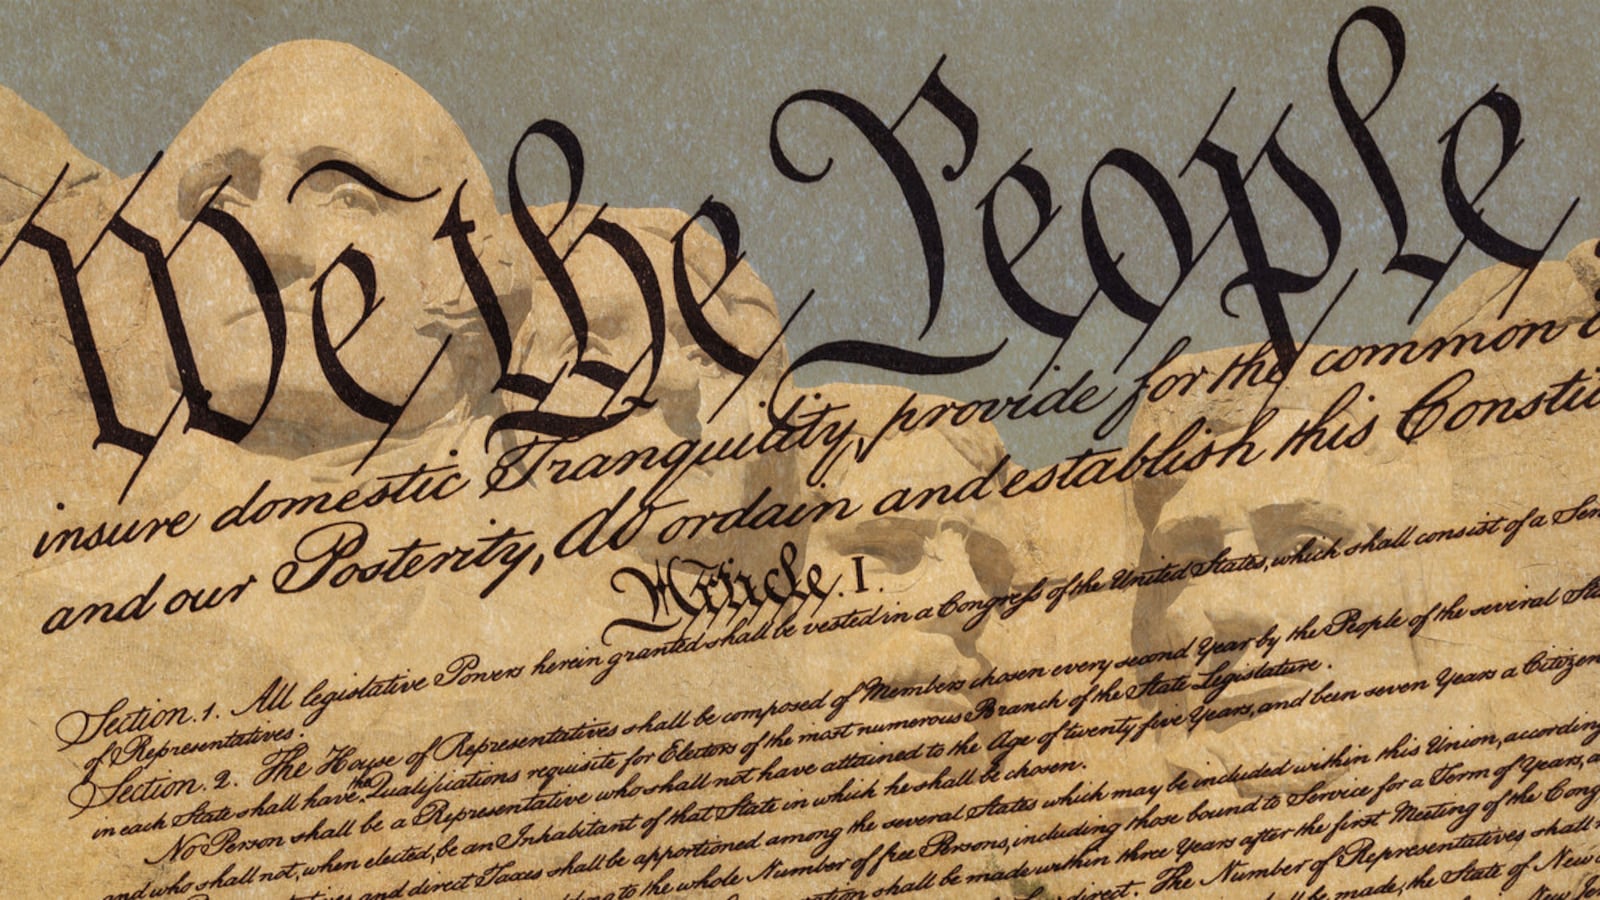 We the People
insure domestic Tranquility, provide for the common
and our Posterity, do ordain and establish this
Article. I.
Section. 1. All legislative Powers herein granted shall be vested in a Congress of the United States, which shall consist of a
of Representatives.
Section. 2. The House of Representatives shall be composed of Members chosen every second Year by the People of the several
in each State shall have the Qualifications requisite for Electors of the most numerous Branch of the State Legislature.
No Person shall be a Representative who shall not have attained to the Age of twenty five Years, and been seven Years a Citizen
and who shall not, when elected, be an Inhabitant of that State in which he shall be chosen.
and direct Taxes shall be apportioned among the several States which may be included within this Union, according
to the whole Number of free Persons, including those bound to Service for a Term of Years,
shall be made within three Years after the first Meeting of the
direct. The Number of Representatives shall
be made, the State of New
New